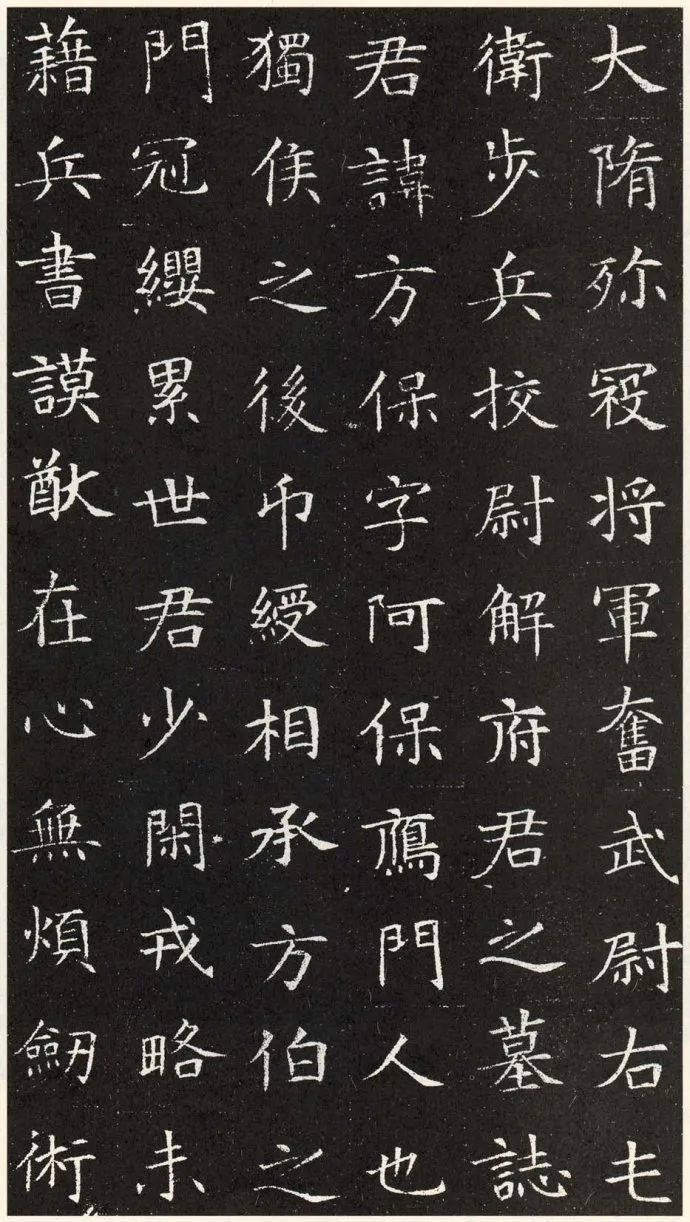 大隋殄寇将軍奮武尉右毛
衛步兵挍尉解府君之墓誌
君諱方保字阿保鴈門人也
獨侯之後印綬相承方伯之
門冠纓累世君少閑戎略未
藉兵書謨猷在心無煩劒術